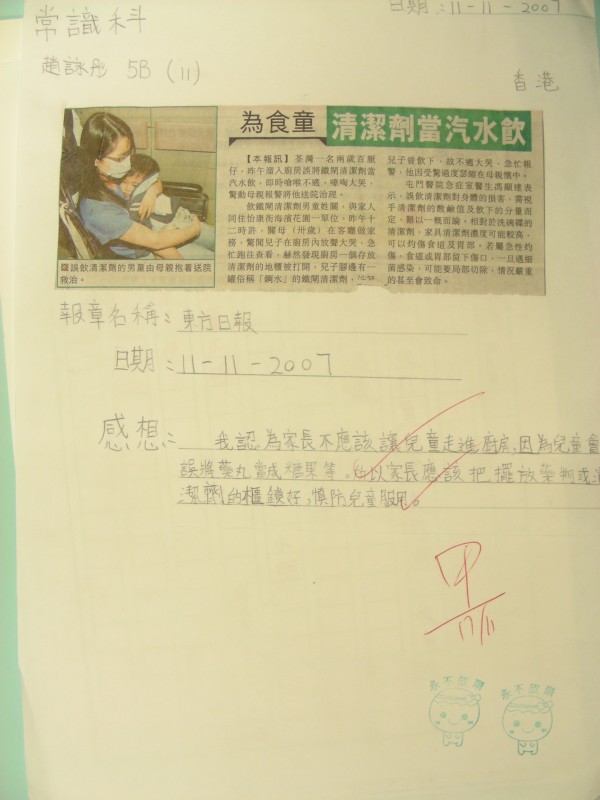 日期：11-11-2007
常識科
趙詠彤 5B (11)
香港
為食童 清潔劑當汽水飲
誤飲清潔劑的男童由母親抱着送院
救治。
【本報訊】荃灣一名兩歲百厭
仔，昨午溜入廚房誤將鐵閘清潔劑當
汽水飲，即時嗆喉不適，嚎啕大哭，
驚動母親報警將他送院治理。
飲鐵閘清潔劑男童姓關，與家人
同住怡康街海濱花園一單位，昨午十
二時許，關母（卅歲）在客廳做家
務，驚聞兒子在廚房內放聲大哭，急
忙跑往查看，赫然發現廚房一個存放
清潔劑的地櫃被打開，兒子腳邊有一
罐俗稱「鏹水」的鐵閘清潔劑，
兒子曾飲下，故不適大哭，急忙報
警，他因受驚過度瑟縮在母親懷中。
屯門醫院急症室醫生馮顯達表
示，誤飲清潔劑對身體的損害，需視
乎清潔劑的酸鹼值及飲下的分量而
定，難以一概而論，相對於洗碗碟的
清潔劑，家具清潔劑濃度可能較高，
可以灼傷食道及胃部，若屬急性灼
傷，食道或胃部留下傷口，一旦遇細
菌感染，可能要局部切除，情況嚴重
的甚至會致命。
報章名稱：東方日報
日期：11-11-2007
感想： 我認為家長不應該讓兒童走進廚房，因為兒童會
誤將藥丸當成糖果等。所以家長應該把擺放藥物或清
潔劑的櫃鎖好，慎防兒童服用。
甲
17/11
永不放棄
永不放棄